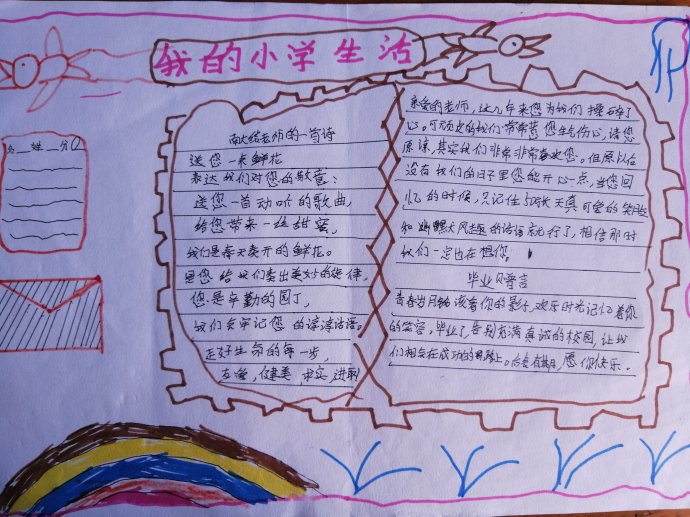 我的小学生活
姓 分
献给老师的一首诗
送您一束鲜花
表达我们对您的敬意;
送您一首动听的歌曲,
给您带来一丝甜蜜,
我们是春天麦开的鲜花。
是您给我们卖出美妙的旋律,
您是辛勤的园丁,
我们会牢记您的谆谆话语。
走好生命的每一步,
友爱,健美 求实,进取!
亲爱的老师,这几年来您为我们操碎了
心。可顽皮的我们常常惹您生气伤心,请您
原谅,其实我们非常非常喜欢您。但愿以后
没有我们的日子里您能开心一点,当您回
忆的时候,只记住 天真可爱的笑脸
和幽默风趣的话语就行了,相信那时
我们一定也在想你。
毕业赠言
青春岁月 该着你的影子,欢乐时光记忆着你
的笑容。毕业了,告别充满真诚的校园,让我
们相会在成功的 路上。后会有期,愿你快乐.